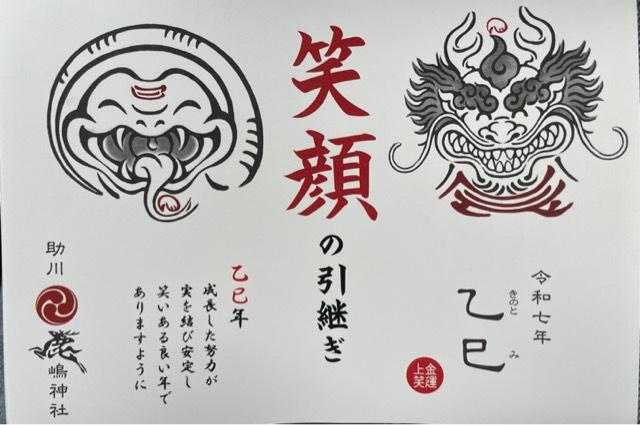 令和七年
乙巳
きのと み
金運
上笑
笑顔の引継ぎ
乙巳年
成長した努力が
実を結び安定し
笑いある良い年で
ありますように
助川
鹿嶋神社